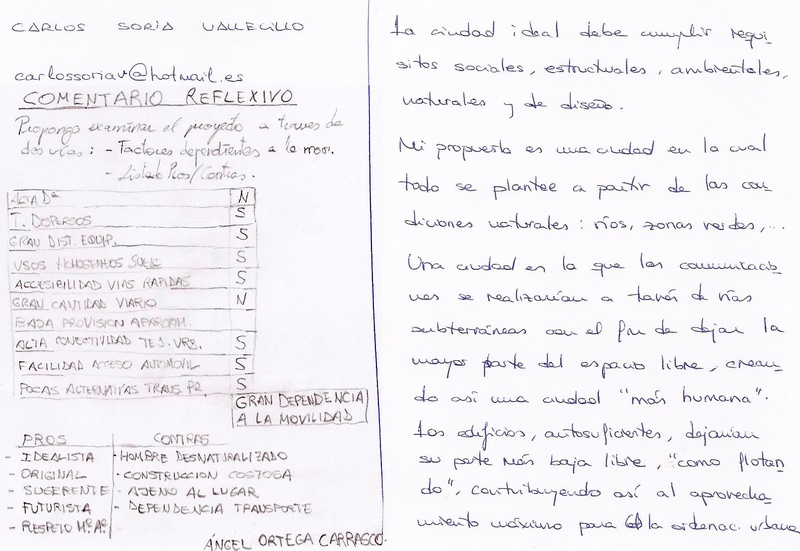 CARLOS SORIA VALLECILLO
carlossoriav@hotmail.es
COMENTARIO REFLEXIVO
Propongo examinar el proyecto a traves de
dos vías : - Factores dependientes a la mov.
- Listado Pros/Contras.
ALTA Dª N
T. DISPERSOS S
GRAN DIST. EQUIP. S
USOS HOMOGENEOS SUELO S
ACCESIBILIDAD VIAS RAPIDAS S
GRAN CANTIDAD VIARIO N
BAJA PROVISION APARCAM.
ALTA CONECTIVIDAD TEJ. URB. S
FACILIDAD ACCESO AUTOMOVIL S
POCAS ALTERNATIVAS TRANS. PR. S
GRAN DEPENDENCIA
A LA MOVILIDAD
PROS
- IDEALISTA
- ORIGINAL
- SUGERENTE
- FUTURISTA
- RESPETO Mº.Aº.
CONTRAS
· HOMBRE DESNATURALIZADO
· CONSTRUCCION COSTOSA
- AJENO AL LUGAR
- DEPENDENCIA TRANSPORTE
ÁNGEL ORTEGA CARRASCO.
La ciudad ideal debe cumplir requi-
sitos sociales, estructurales, ambientales,
naturales y de diseño.
Mi propuesta es una ciudad en la cual
todo se plantee a partir de las con
diciones naturales : ríos, zonas verdes,...
Una ciudad en la que las comunicacio
nes se realizarían a través de vías
subterráneas con el fin de dejar la
mayor parte del espacio libre, crean-
do así una ciudad "más humana".
Los edificios, autosuficientes, dejarían
su parte más baja libre, "como flotan
do", contribuyendo así al aprovecha
miento máximo para la ordenac. urbana